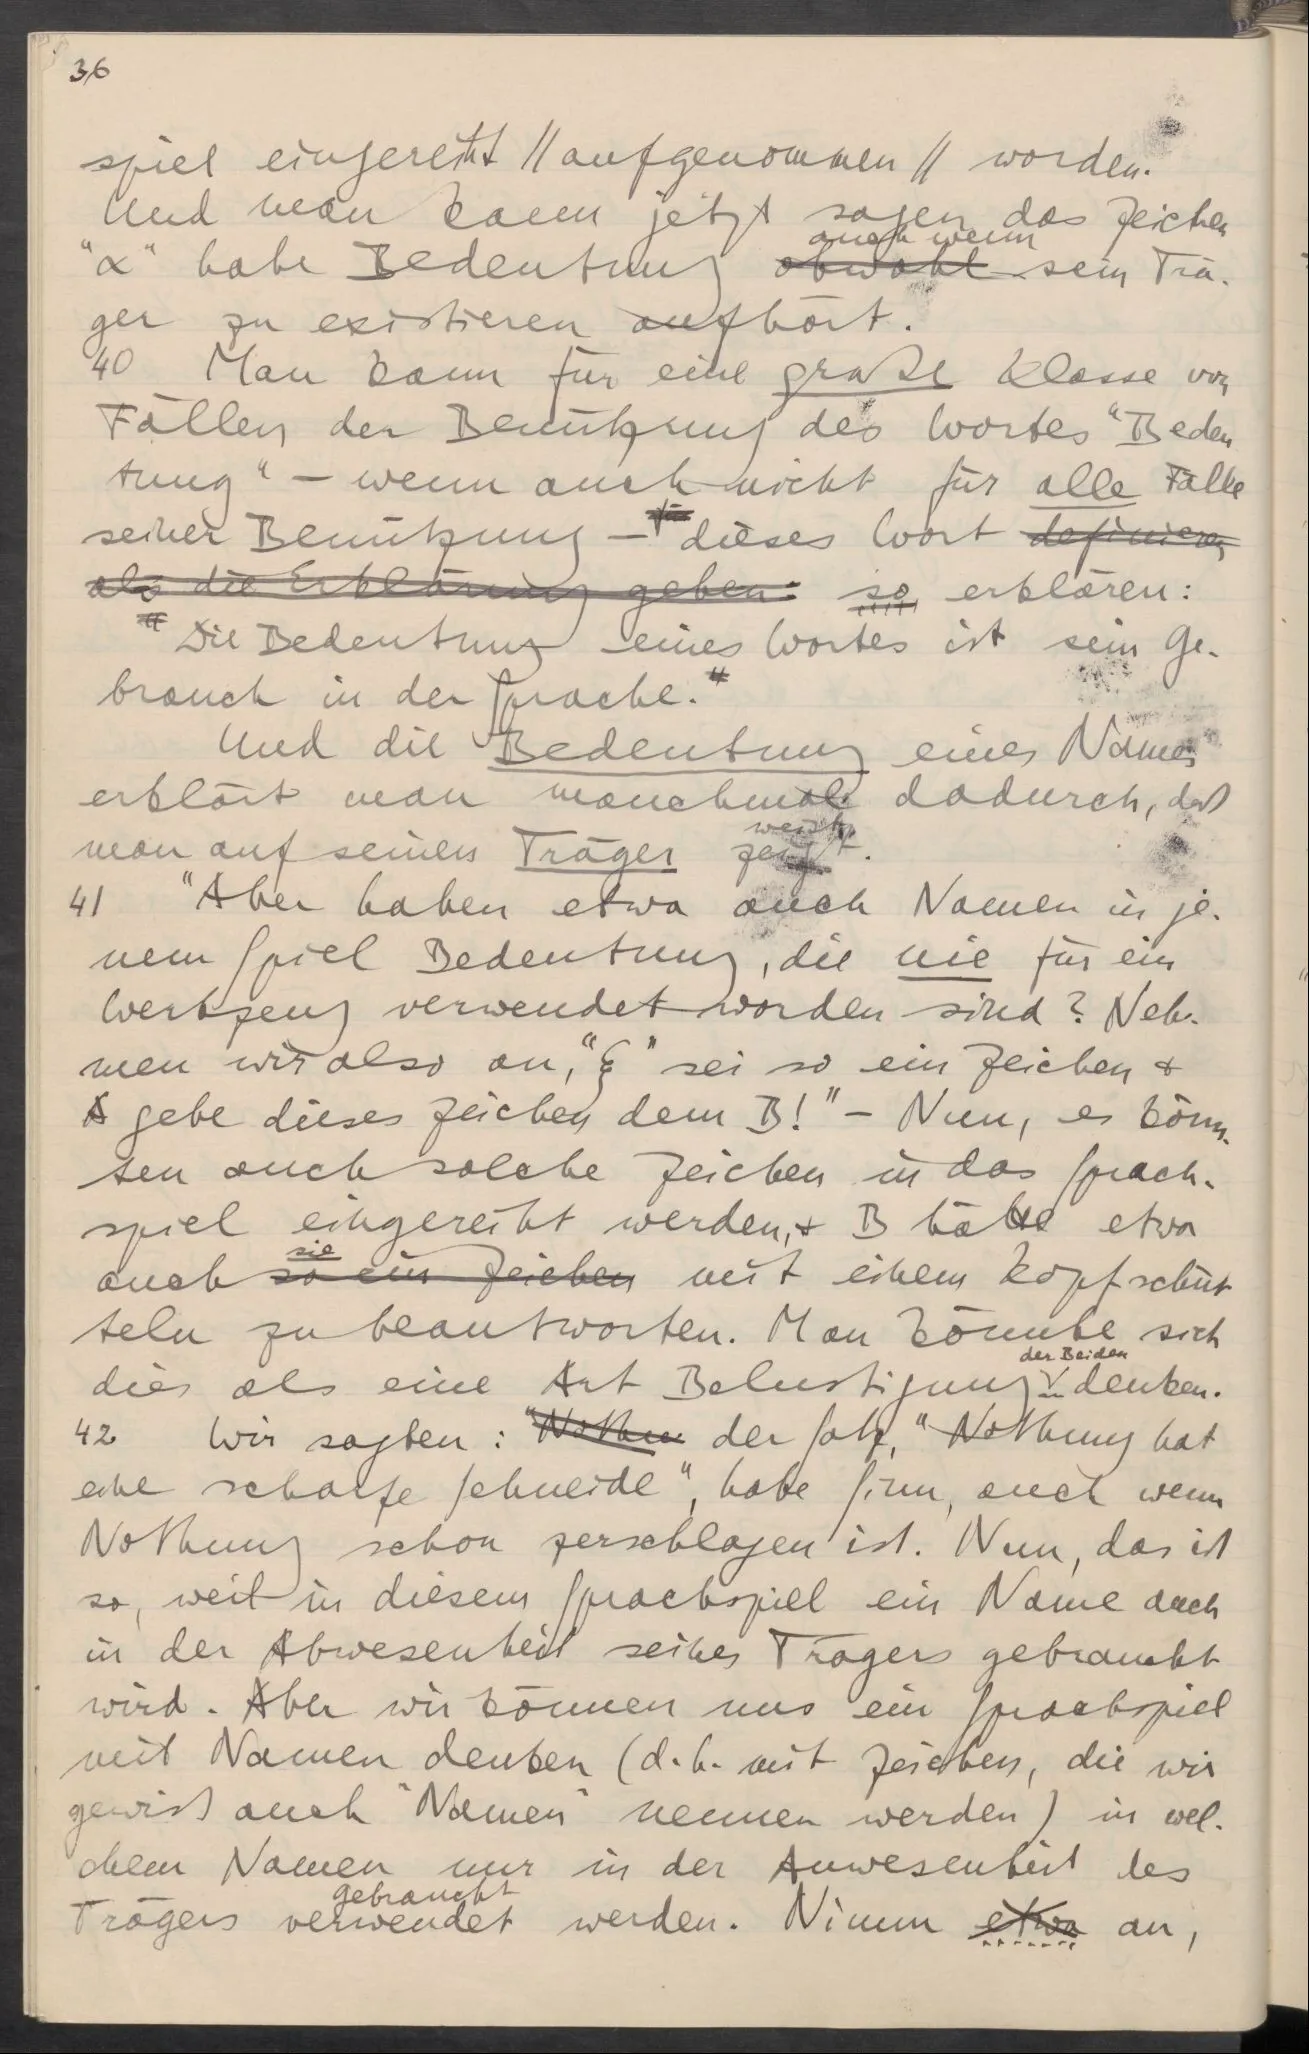 36
spiel eingereiht // aufgenommen // worden.
Und man kann jetzt sagen das Zeichen
auch wenn
"α" habe Bedeutung obwohl sein Trä-
ger zu existieren aufhört.
40 Man kann für eine große Klasse von
Fällen der Benützung des Wortes "Bedeu
tung" – wenn auch nicht für alle Fälle
seiner Benützung – dieses Wort definieren
als die Erklärung geben: so erklären:
"Die Bedeutung eines Wortes ist sein Ge-
brauch in der Sprache."
Und die Bedeutung eines Namens
erklärt man manchmal dadurch, daß
weist
man auf seinen Träger zeigt.
41 "Aber haben etwa auch Namen in je-
nem Spiel Bedeutung, die nie für ein
Werkzeug verwendet worden sind? Neh-
men wir also an, "ξ" sei so ein Zeichen &
A gebe dieses Zeichen dem B!" – Nun, es könn-
ten auch solche Zeichen in das Sprach-
spiel eingereiht werden, & B hätte etwa
sie
auch so ein Zeichen mit einem Kopfschüt
teln zu beantworten. Man könnte sich
der Beiden
dies als eine Art Belustigung denken.
42 Wir sagten: "Nothu der Satz, "Nothung hat
eine scharfe Schneide", habe Sinn, auch wenn
Nothung schon zerschlagen ist. Nun, das ist
so, weil in diesem Sprachspiel ein Name auch
in der Abwesenheit seines Trägers gebraucht
wird. Aber wir können uns ein Sprachspiel
mit Namen denken (d.h. mit Zeichen, die wir
gewiß auch "Namen" nennen werden) in wel-
chem Namen nur in der Anwesenheit des
gebraucht
Trägers verwendet werden. Nimm etwa an,